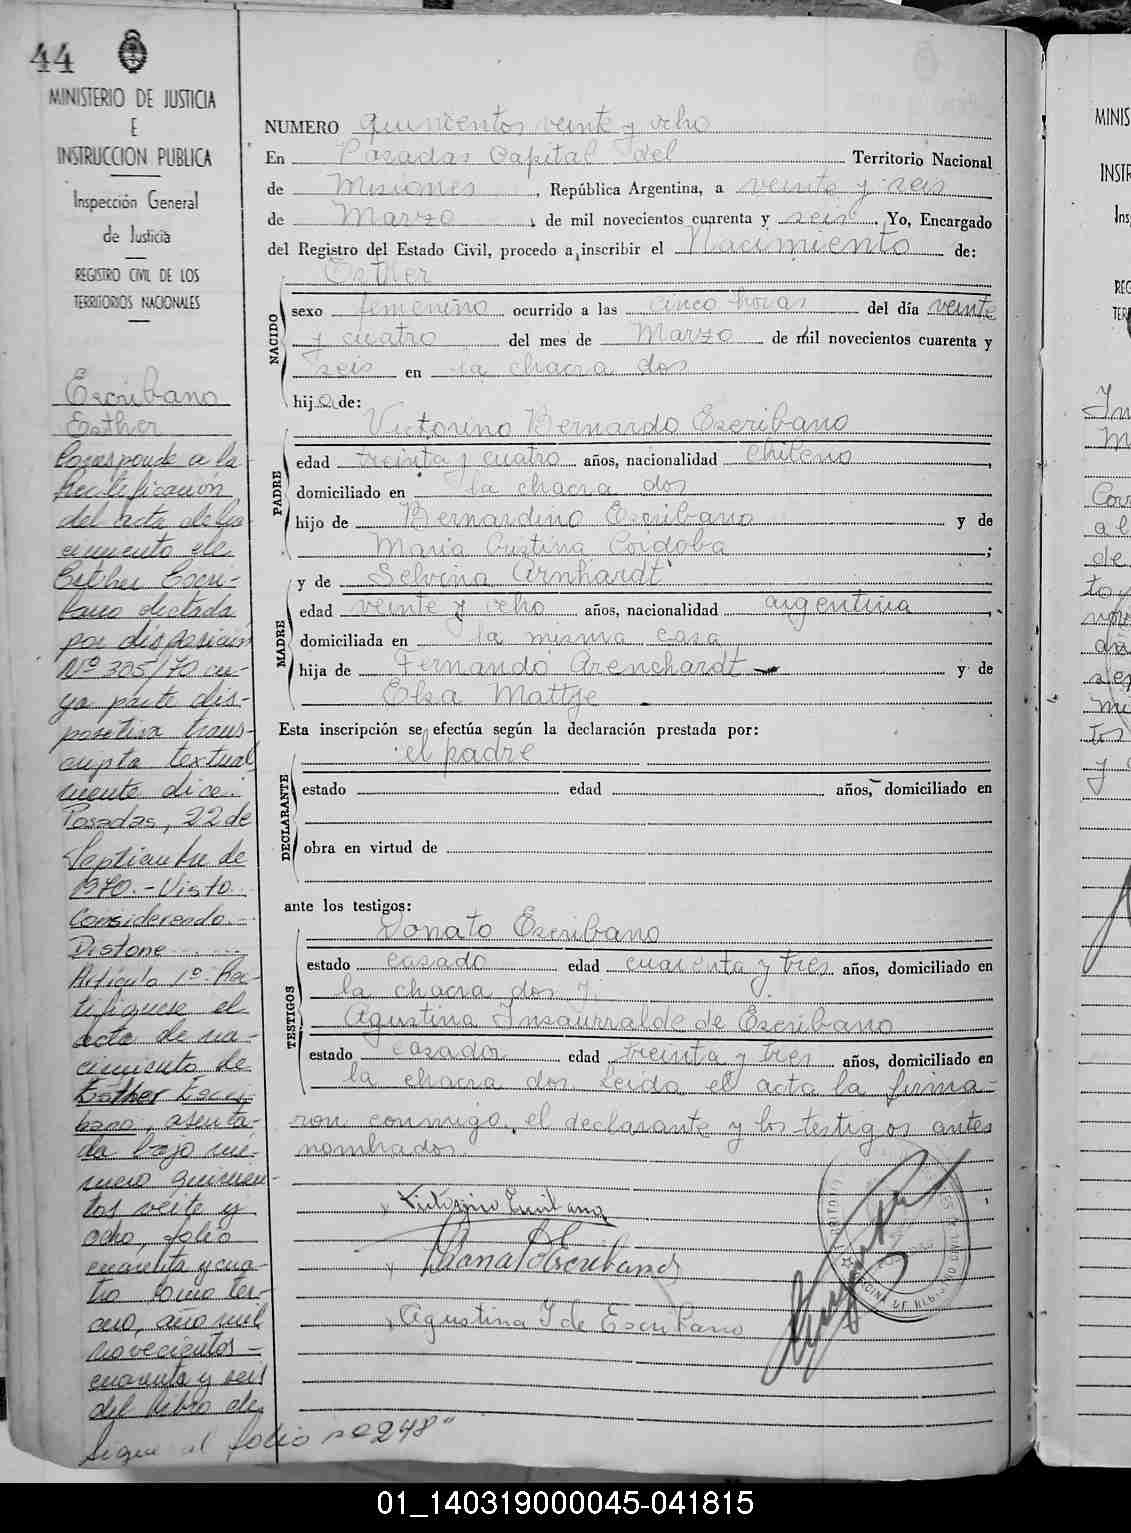 44
MINISTERIO DE JUSTICIA
E
INSTRUCCION PUBLICA
Inspección General
de Justicia
REGISTRO CIVIL DE LOS
TERRITORIOS NACIONALES
Escribano
Esther
Corresponde a la
Rectificación
del acta de na-
cimiento de
Esther Escri-
bano dictada
por disposición
Nº 305/70 cu-
ya parte dis-
positiva trans-
cripta textual
mente dice.
Posadas, 22 de
Septiembre de
1970.- Visto...
Considerando.-
Dispone
Artículo 1º: Rec-
tifiquese el
acta de na-
cimiento de
Esther Escri-
bano, asenta-
da bajo nú-
mero quinien-
tos veite y
ocho, folio
cuarenta y cua-
tro tomo ter-
cero, año mil
novecientos
cuarenta y seis
del libro de
Sigue al folio nº 248"
NUMERO quinientos veinte y ocho
En Posadas Capital del Territorio Nacional
de Misiones, República Argentina, a veinte y seis
de Marzo, de mil novecientos cuarenta y seis. Yo, Encargado
del Registro del Estado Civil, procedo a inscribir el Nacimiento de:
Esther
NACIDO
sexo femenino ocurrido a las cinco horas del día veinte
y cuatro del mes de Marzo de mil novecientos cuarenta y
seis en la chacra dos
hija de:
Victorino Bernardo Escribano
PADRE
edad treinta y cuatro años, nacionalidad chileno,
domiciliado en la chacra dos
hijo de Bernardino Escribano y de
Maria Cristina Cordoba;
y de Selvina Arnhardt
MADRE
edad veinte y ocho años, nacionalidad argentina,
domiciliada en la misma casa
hija de Fernando Arenchardt y de
Elsa Mattje
Esta inscripción se efectúa según la declaración prestada por:
el padre
DECLARANTE
estado edad años, domiciliado en
obra en virtud de
ante los testigos:
Donato Escribano
TESTIGOS
estado casado edad cuarenta y tres años, domiciliado en
la chacra dos y
Agustina Insaurralde de Escribano
estado casador edad treinta y tres años, domiciliado en
la chacra dos. Leida el acta la firma-
ron conmigo, el declarante y los testigos antes
nombrados.
Victorino Escribano
Donato Escribano
Agustina I de Escribano
MINIS
01_140319000045-041815